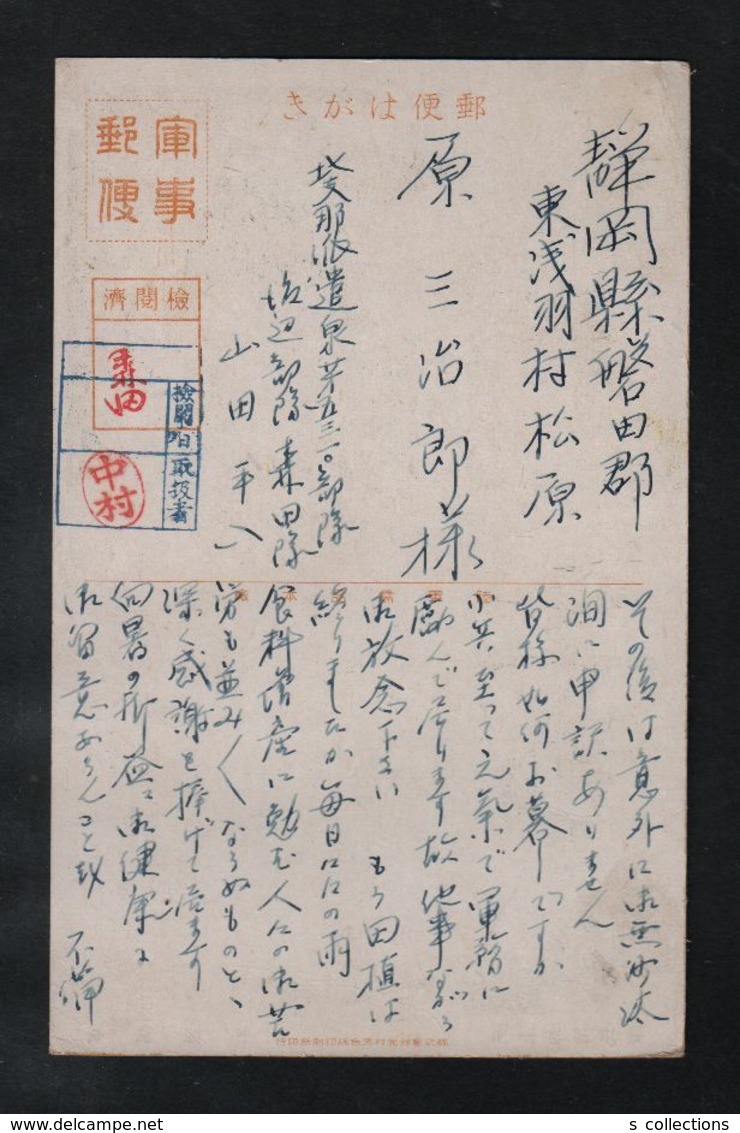 郵便はがき
軍事
郵便
檢閲濟
森田
檢閲
取扱者
中村
静岡縣磐田郡
東浅羽村松原
原三治郎様
北支那派遣泉第五三一〇部隊
部隊森田隊
山田平八
その後は意外に御無沙汰
洵に申訳ありません
皆様如何お暮しですか
小兵至って元氣で軍務に
励んで居ります故他事ながら
御放念下さい もう田植は
終りましたか毎日の雨
食料増産に勉む人々の御苦
労も並み〱ならぬものと、
深く感謝を捧げて居ます
向暑の折益々御健康に
御留意あらんことを 不備
s collections
delcampe.net